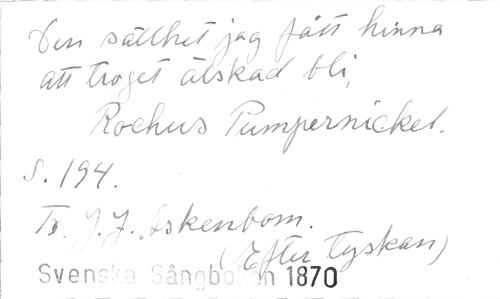 Den sällhet jag fått hinna
att troget älskad bli,
Rochus Pumpernickel.
S. 194.
Tr. J. J. Askenbom.
(Efter tyskan)
Svenska Sångboken 1870